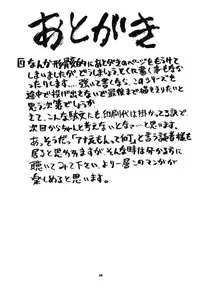 あとがき
なんか形骸的にあとがきのページをもうけて
しまいましたが、どうしましょう。とくに書く事もなか
ったりします…。強いて書くなら、このシリーズを
途中で投げ出さないで最後まで描ききりたいと
思う次第でしょうか
えて、こんな駄文にも印刷代は掛かってる訳で
次回からちゃんと考えないとなー…と思います。
あっ、そうだ。「アナえもん」って何?と言う読者様も
居ると思われますが、そんな時は分かる方に
聴いてみて下さい。より一層このマンガが
楽しめると思います。